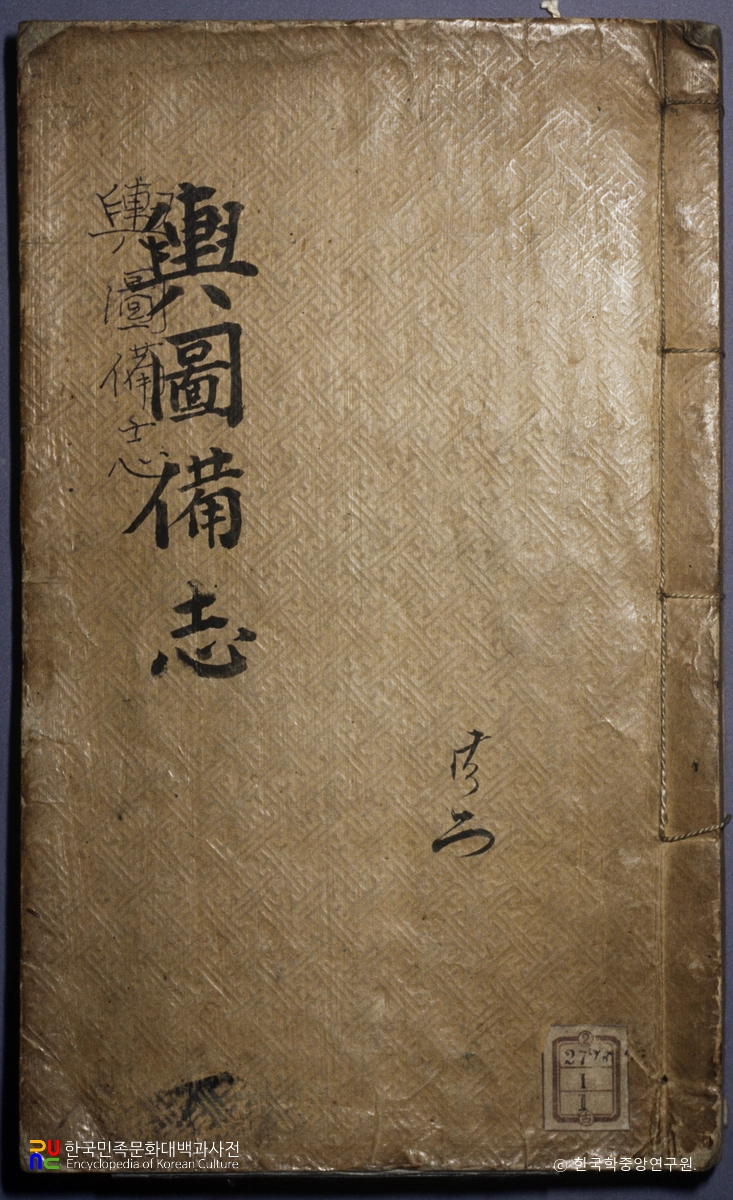 輿圖備志
輿圖備志
2
27
1
1
한국민족문화대백과사전
Encyclopedia of Korean Culture
ⓒ 한국학중앙연구원